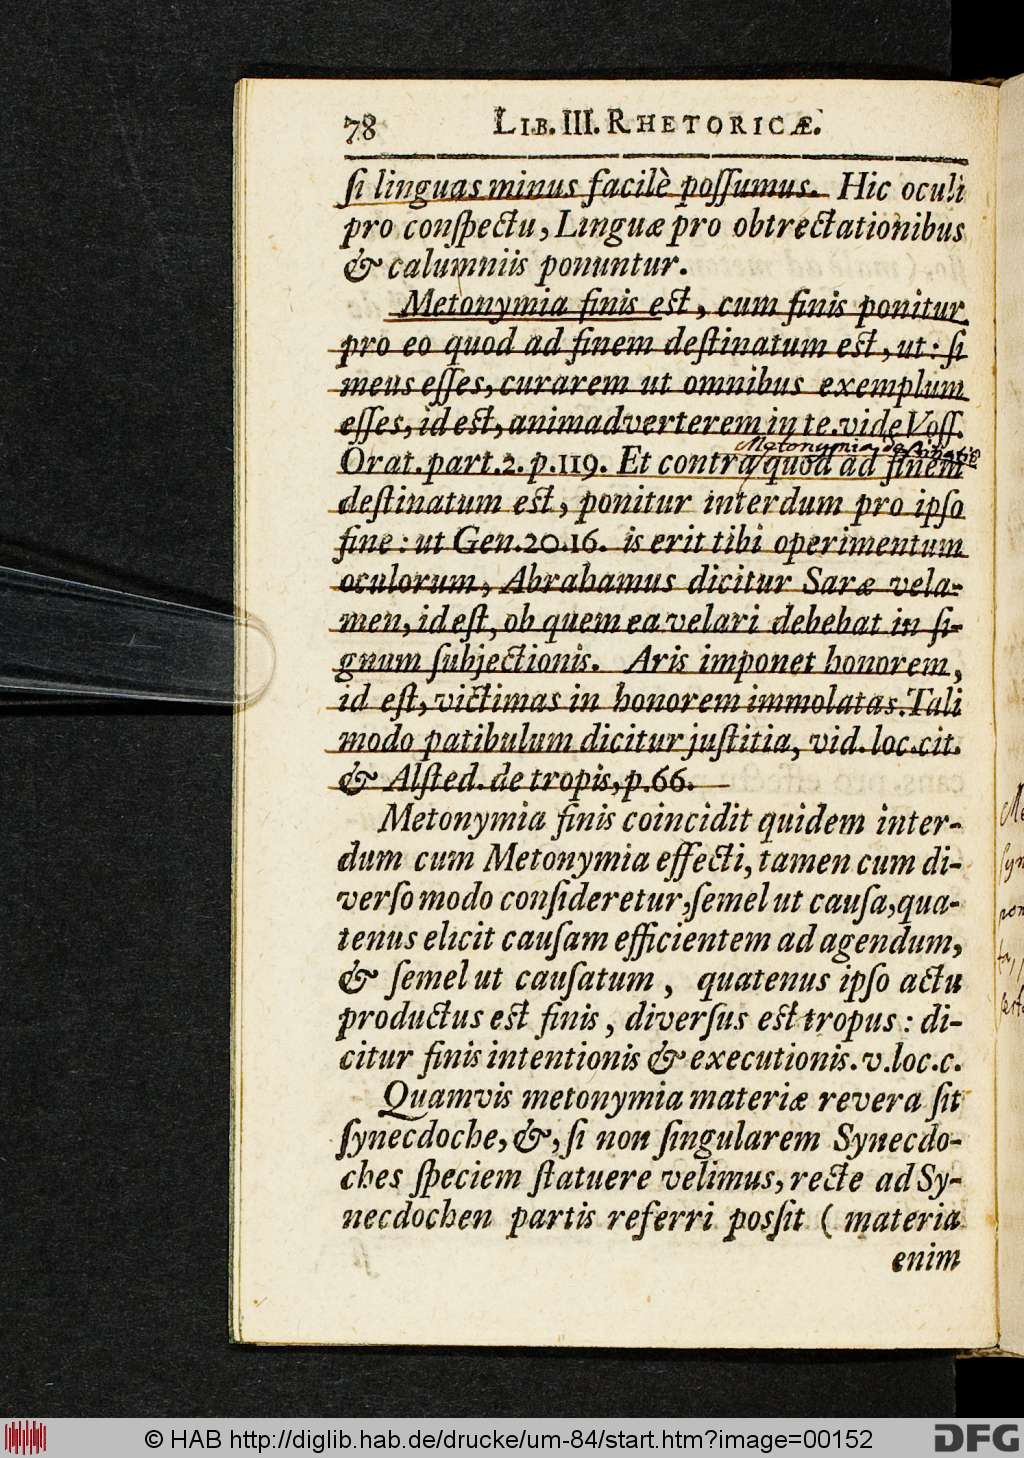 78 LIB. III. RHETORICÆ.
ſi linguas minus facilè poſſumus. Hic oculi
pro conſpectu, Linguæ pro obtrectationibus
& calumniis ponuntur.
Metonymia finis est, cum finis ponitur
pro eo quod ad finem deſtinatum est, ut: ſi
meus eſſes, curarem ut omnibus exemplum
eſſes, id est, animadverterem in te. vide Voſſ.
Metonymia destinati
Orat. part. 2. p. 119. Et contra quod ad finem
deſtinatum est, ponitur interdum pro ipſo
fine: ut Gen. 20. 16. is erit tibi operimentum
oculorum, Abrahamus dicitur Saræ vela-
men, id eſt, ob quem ea velari debebat in ſi-
gnum ſubjectionis. Aris imponet honorem,
id eſt, victimas in honorem immolatas. Tali
modo patibulum dicitur juſtitia, vid. loc. cit.
& Alſted. de tropis, p. 66.
Metonymia finis coincidit quidem inter-
dum cum Metonymia effecti, tamen cum di-
verſo modo conſideretur, ſemel ut cauſa, qua-
tenus elicit cauſam efficientem ad agendum,
& ſemel ut cauſatum, quatenus ipſo actu
productus est finis, diverſus est tropus: di-
citur finis intentionis & executionis. v. loc. c.
Quamvis metonymia materiæ revera ſit
ſynecdoche, &, ſi non ſingularem Synecdo-
ches ſpeciem ſtatuere velimus, recte ad Sy-
necdochen partis referri poſſit ( materia
enim
© HAB http://diglib.hab.de/drucke/um-84/start.htm?image=00152
DFG